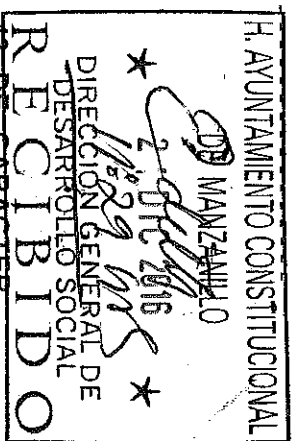 H. AYUNTAMIENTO CONSTITUCIONAL
DE MANZANILLO
2 DIC 2016
11:29 hrs
DIRECCIÓN GENERAL DE
DESARROLLO SOCIAL
RECIBIDO